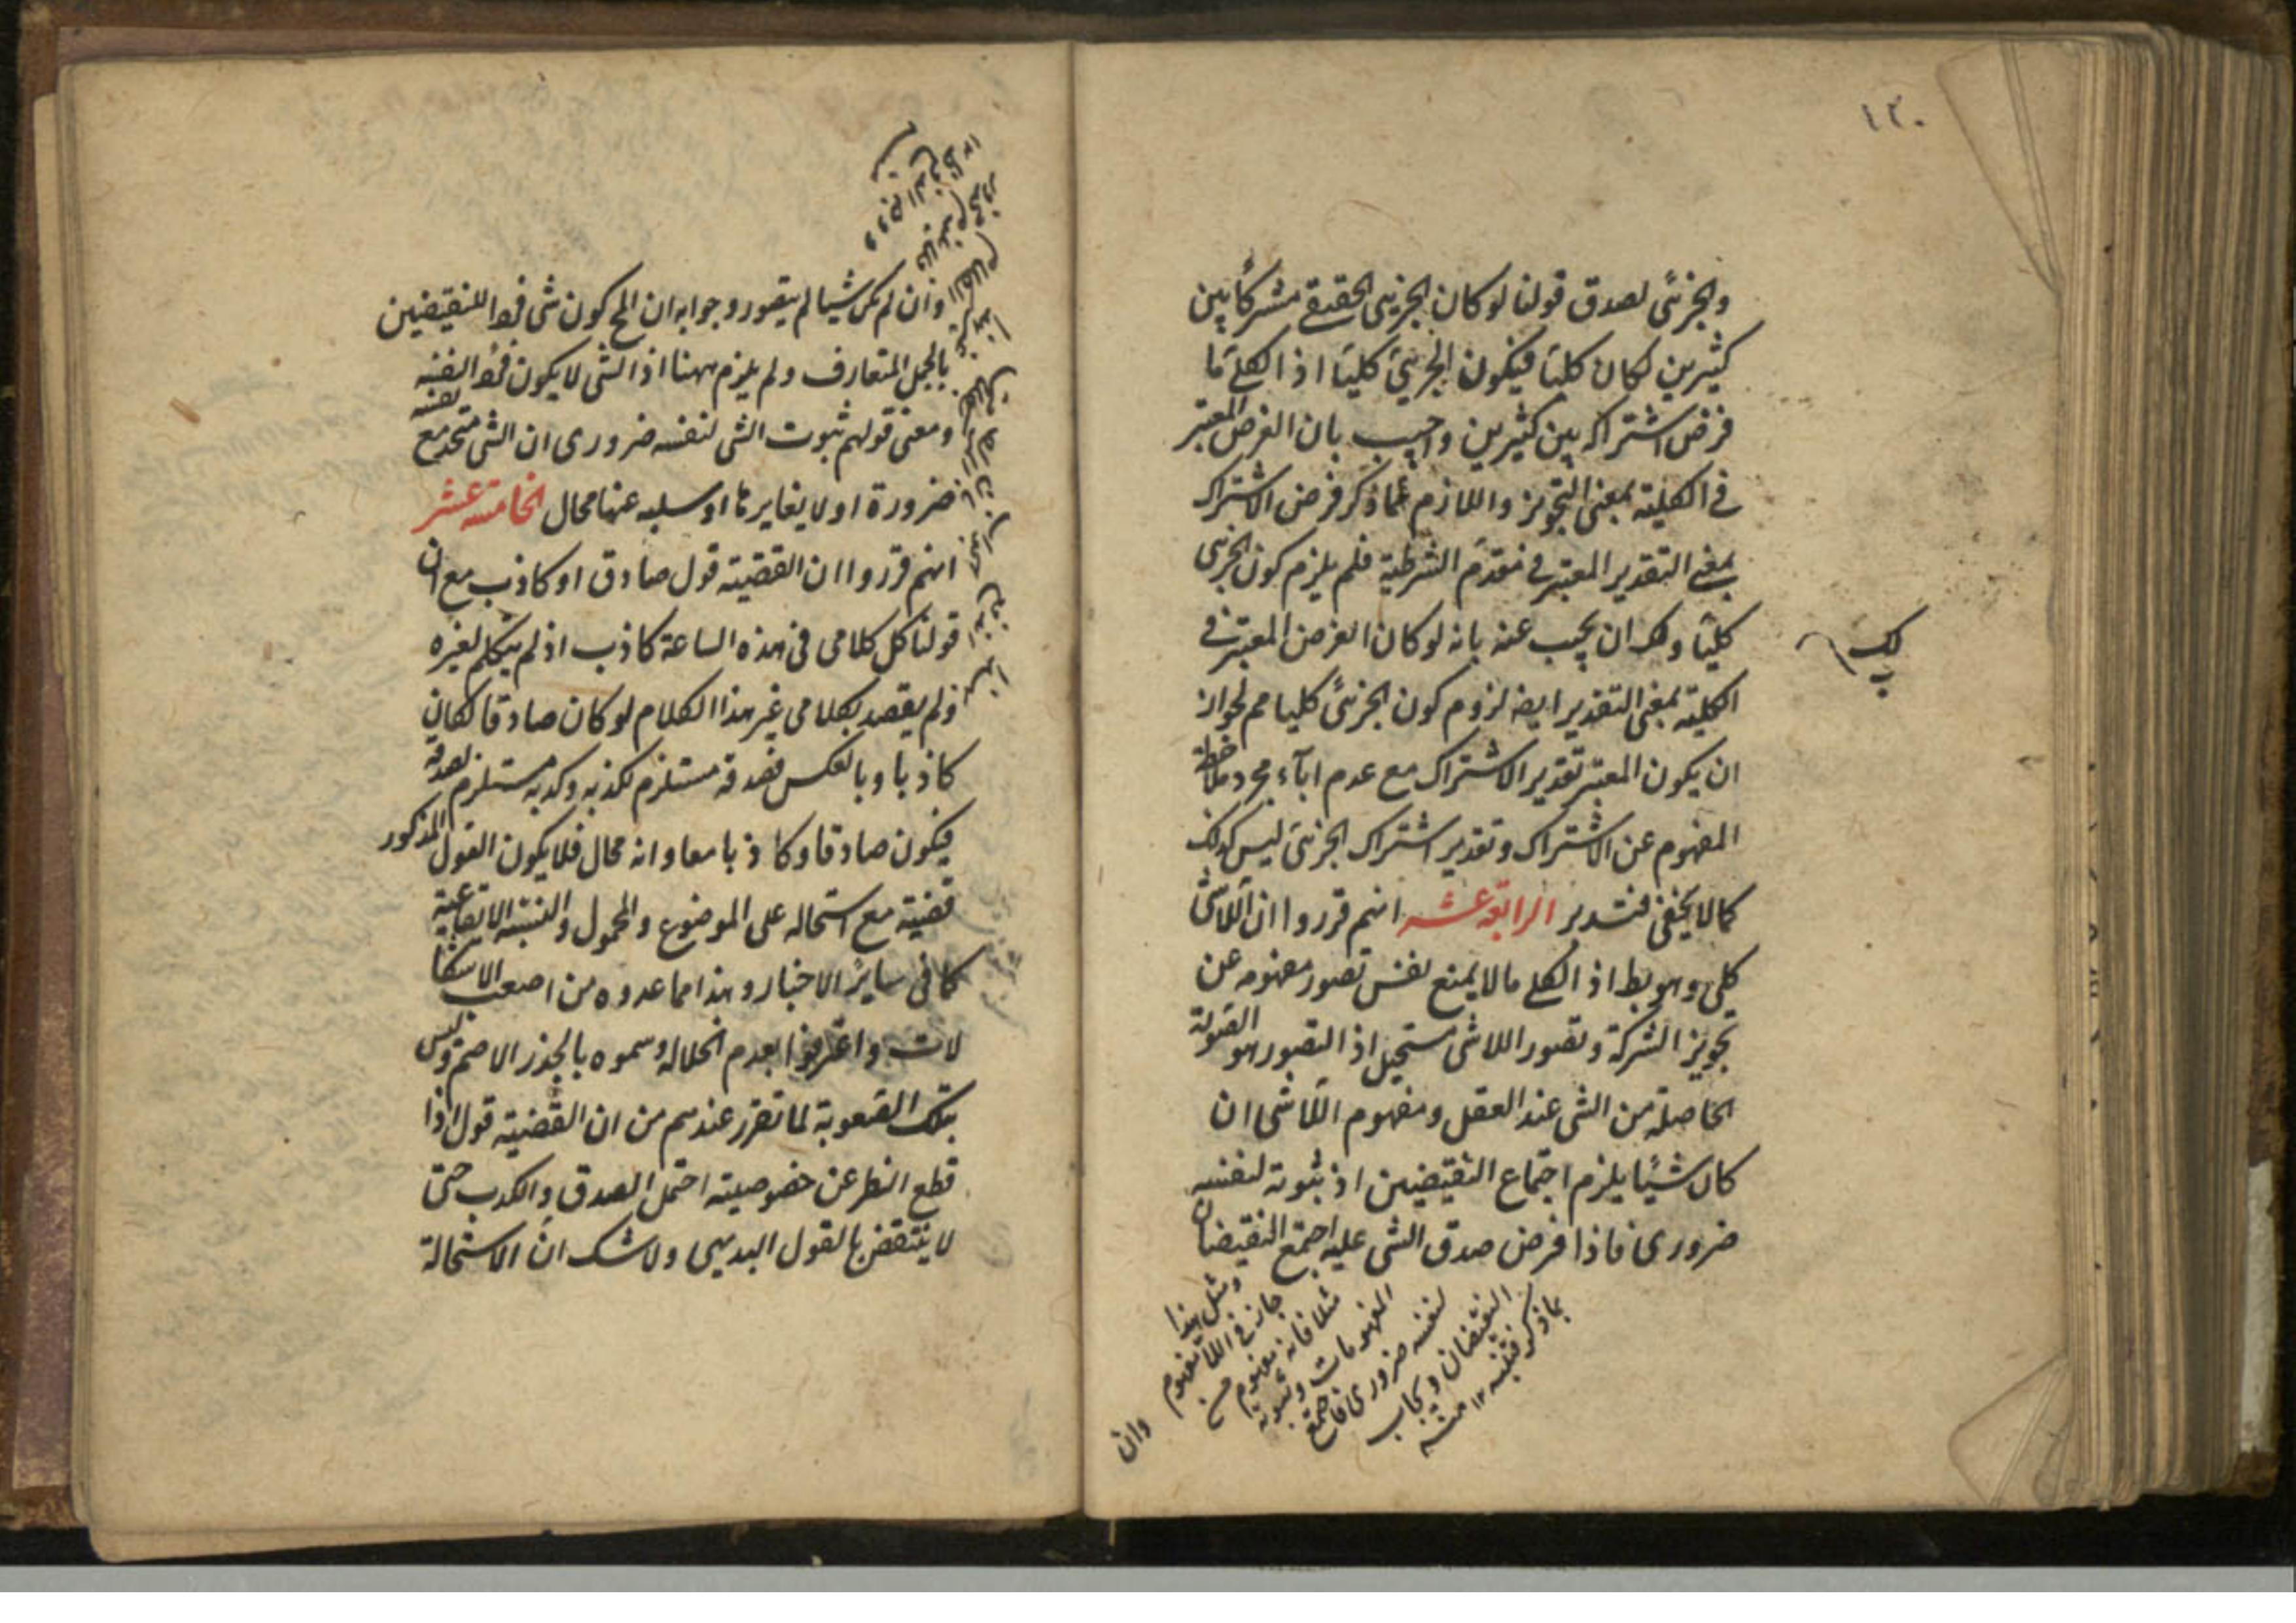 ١٣٠
والجزئى لصدق قولنا لو كان الجزئى الحقيقے مشتركاً بين
كثيرين لكان كليّا فيكون الجزئىّ كليّا اذ الكلے ما
فرض اشتراكه بين كثيرين واجيب بان الفرض المعتبر
فے الكلية بمعنى التجويز واللازم مما ذكر فرض الاشتراك
بمعنى التقدير المعتبر فے مقدم الشرطية فلم يلزم كون الجزئى
كليّا ولك ان يجيب عنه بانه لو كان الفرض المعتبر فے
الكلية بمعنى التقدير ايضه لزوم كون الجزئىّ كليا مم لجواز
ان يكون المعتبر تقدير الاشتراك مع عدم اباء مجرد ملاحظة
المفهوم عن الاشتراك وتقدير اشتراك الجزئى ليس كذلك
كما لا يخفى فتدبر الرابعة عشر انهم قرروا ان اللاشى
كلى وهو بط اذ الكلے ما لا يمنع نفس تصور مفهومه عن
تجويز الشركة وتصور اللاشى مستحيل اذ التصور هو الصورة
الحاصلة من الشى عند العقل ومفهوم اللاشى ان
كان شيئا يلزم اجتماع النقيضين اذ ثبوته لنفسه
ضرورى فاذا فرض صدق الشى عليه اجتمع النقيضان
ومثل هذا
جاز فے اللامفهوم
مثلا فانه مفهوم من
المفهومات وثبوته
لنفسه ضرورى فاجتمع
النقيضان ويجاب
بما ذكر فتنبه ١٢ منه
وان
وان لم يكن شيئا لم يتصور وجوابه ان المح كون شى فردا للنقيضين
بالحمل المتعارف ولم يلزم ههنا اذ الشى لا يكون فردا لنفسه
ومعنى قولهم ثبوت الشى لنفسه ضرورى ان الشى متحد مع نفسه
ضرورة او لا يغايرها او سلبه عنها محال الخامسة عشر
انهم قرروا ان القضية قول صادق او كاذب مع ان
قولنا كل كلامى فى هذه الساعة كاذب اذ لم يتكلم لغيره
ولم يقصد بكلامى غير هذا الكلام لو كان صادقا لكان
كاذبا وبالعكس فصدقه مستلزم لكذبه وكذبه مستلزم لصدقه
فيكون صادقا وكاذبا معا وانه محال فلا يكون القول المذكور
قضية مع استحاله على الموضوع والمحمول والنسبة الايقاعية
كما فى ساير الاخبار وهذا مما عدوه من اصعب الاشكا
لات واعترفوا بعدم انحلاله وسموه بالجذر الاصم وليس
بتلك الصعوبة لما تقرر عندهم من ان القضية قول اذا
قطع النظر عن خصوصيته احتمل الصدق والكذب حتى
لا ينتقض بالقول البديهى ولا شك ان الاستحالة